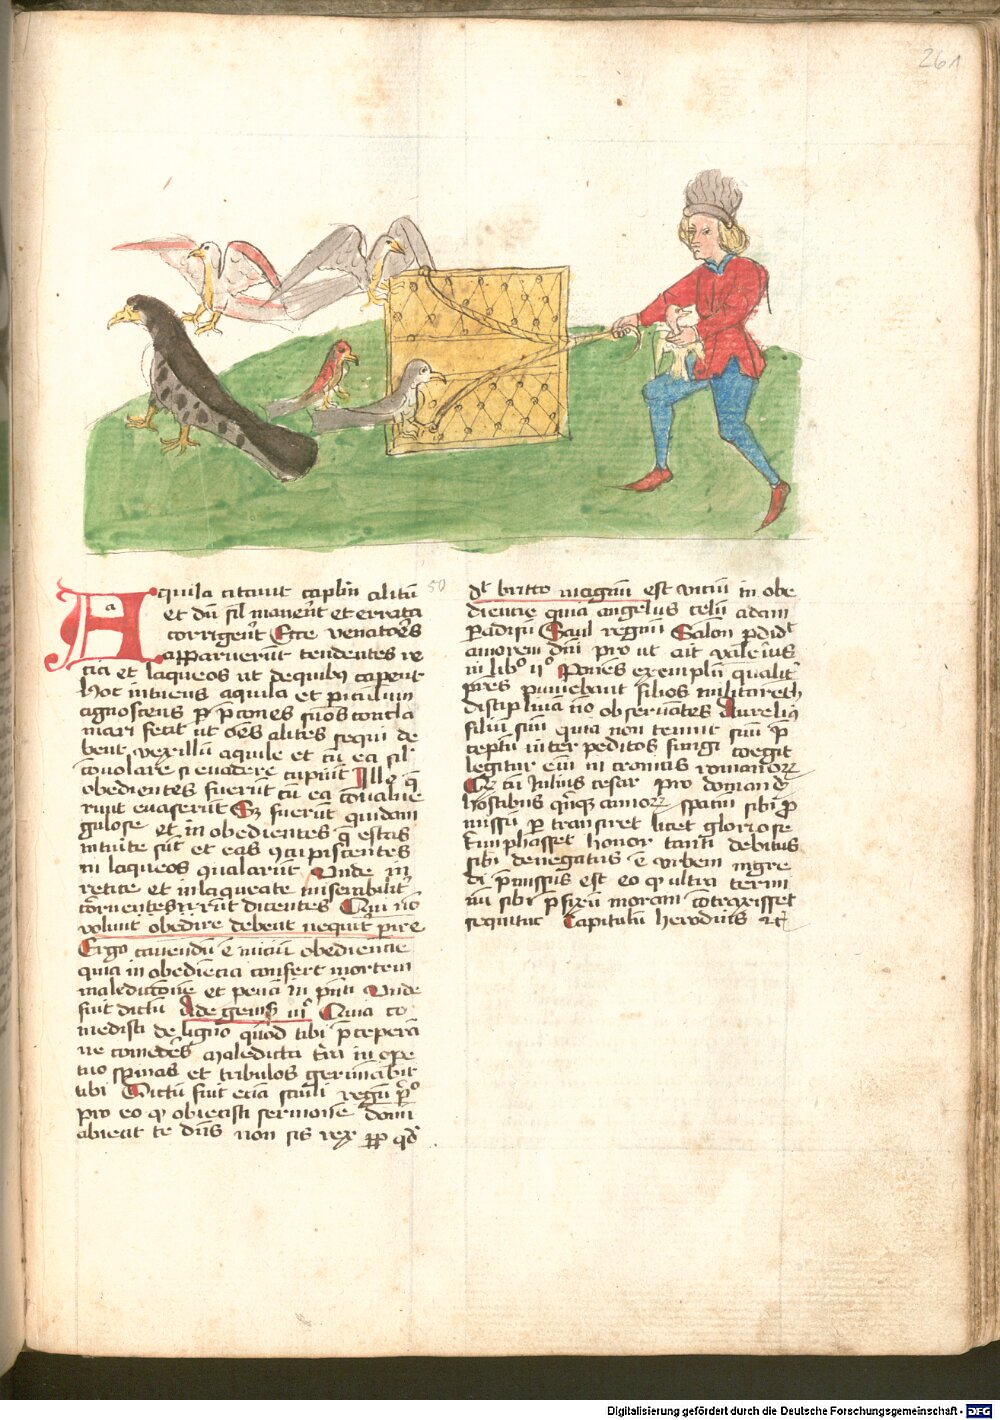 261
Aquila citavit capl'm alitū
et dū sil' manerēt et errata
corrigerēt Ecce venatores
apparuerūt tendentes re
cia et laqueos ut de quibꝫ caperēt
hoc intuens aquila et periculum
agnoscens p̄ p̄cones suos concla
mari fecit ut oēs alites sequi de
berēt vexillū aquile et cū ea sil'
convolare si evadere cupiūt Ille q̄
obedientes fuerūt cū ea convalue
runt evaserūt Sꝫ fuerūt quidam
gulose et inobedientes q̄ estas
intuite sūt et eas ꝯcupiscentes
in laqueos
Unde in
retite et inlaqueate miserabilit'
dicentes Qui nō
volunt obedire debent nequit' p̄ire
Ergo cavendū ē
obediencie
quia inobediēcia confert mortem
maledictionē et penā in p̄nti Unde
fuit dictū Ade geneſ iiiº Quia co
medisti de ligno quod tibi p̄ceperā
ne comedes Maledicta t̄ra in ope
tuo spinas et tribulos germinabit
tibi Dictū fuit eciā sauli regū pº
pro eo q̨ obiecisti sermonē domi
abiecit te dn̄s non sis rex qd'
50
dt britto magnū est viciū in obe
diencie quia angelus celū adam
p̄adisū Saul regnū Salon p̄did'
amorem dn̄i pro ut ait valeius
in libº iiº Ponēs exemplū qualit'
pr̄es puniebant filios militarem
disciplinā nō observātes Aurelius
filiū suū quia non tenuit suū p̄
ceptū inter peditos fungi coegit
legitur eīn in cronicis romanorꝝ
Q̄ cū Julius cesar pro domandis
hostibus qn̄qꝫ annorꝝ spatiū sibi p̄
missū p̄transiret licet gloriose
triumphasset honor tanti debitus
sibi denegatus ē urbem ingre
di p̄missus est eo q̨ ultra termi
nū sibi p̄fixū moram cotraxisset
sequitur Capitulū herodius ꝛc
Digitalisierung gefördert durch die Deutsche Forschungsgemeinschaft - DFG